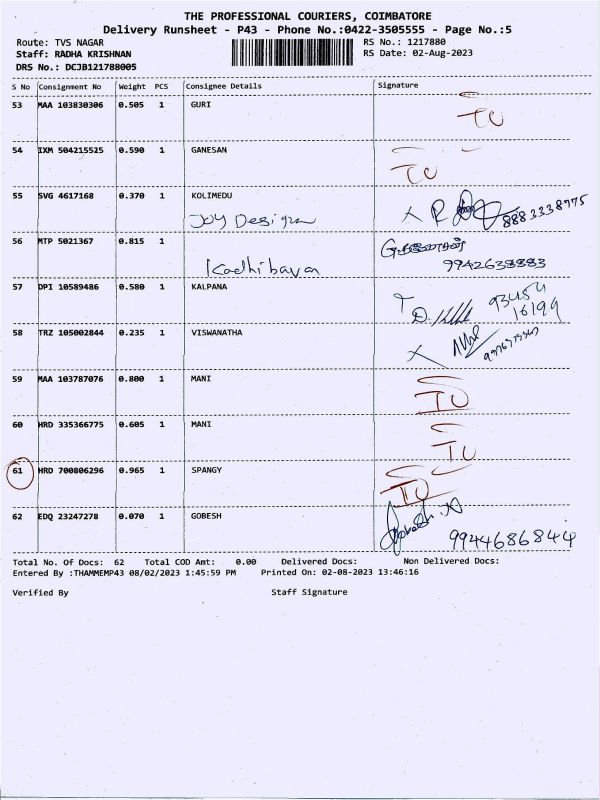 THE PROFESSIONAL COURIERS, COIMBATORE
Delivery Runsheet - P43 - Phone No.:0422-3505555 - Page No.:5
Route: TVS NAGAR
RS No.: 1217880
Staff: RADHA KRISHNAN
RS Date: 02-Aug-2023
DRS No.: DCJB121788005
S No Consignment No Weight PCS Consignee Details Signature
53 MAA 103830306 0.505 1 GURI
TU
54 IXM 504215525 0.590 1 GANESAN
TU
55 SVG 4617168 0.370 1 KOLIMEDU
Joy Design
8883338775
56 MTP 5021367 0.815 1
Kadhibavan
9942638883
57 DPI 10589486 0.580 1 KALPANA
93454
16199
58 TRZ 105002844 0.235 1 VISWANATHA
59 MAA 103787076 0.800 1 MANI
TU
60 HRD 335366775 0.605 1 MANI
TU
61 HRD 700806296 0.965 1 SPANGY
TU
62 EDQ 23247278 0.070 1 GOBESH
9944686844
Total No. Of Docs: 62 Total COD Amt: 0.00 Delivered Docs: Non Delivered Docs:
Entered By :THAMMEMP43 08/02/2023 1:45:59 PM Printed On: 02-08-2023 13:46:16
Verified By Staff Signature